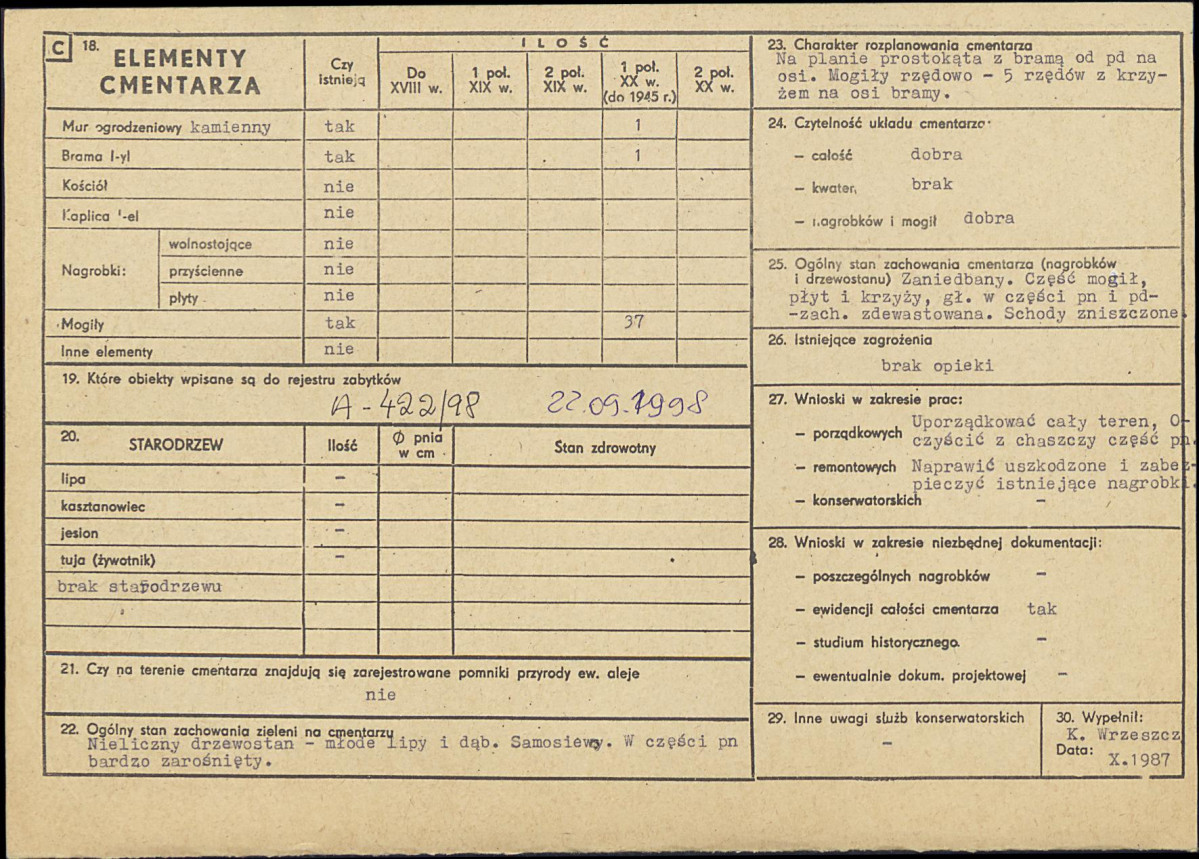 C 18. ELEMENTY CMENTARZA
Czy istnieją
ILOŚĆ
Do XVIII w.
1 poł. XIX w.
2 poł. XIX w.
1 poł. XX w. (do 1945 r.)
2 poł. XX w.
Mur ogrodzeniowy kamienny tak 1
Brama tak 1
Kościół nie
Kaplica nie
Nagrobki:
wolnostojące nie
przyścienne nie
płyty nie
Mogiły tak 37
Inne elementy nie
19. Które obiekty wpisane są do rejestru zabytków
A-422/98 22.09.1998
20. STARODRZEW Ilość Ø pnia w cm Stan zdrowotny
lipa –
kasztanowiec –
jesion –
tuja (żywotnik) –
brak starodrzewu
21. Czy na terenie cmentarza znajdują się zarejestrowane pomniki przyrody ew. aleje
nie
22. Ogólny stan zachowania zieleni na cmentarzu
Nieliczny drzewostan – młode lipy i dąb. Samosiewy. W części pn
bardzo zarośnięty.
23. Charakter rozplanowania cmentarza
Na planie prostokąta z bramą od pd na
osi. Mogiły rzędowo – 5 rzędów z krzy-
żem na osi bramy.
24. Czytelność układu cmentarza
– całość dobra
– kwater, brak
– nagrobków i mogił dobra
25. Ogólny stan zachowania cmentarza (nagrobków
i drzewostanu) Zaniedbany. Część mogił,
płyt i krzyży, gł. w części pn i pd-
-zach. zdewastowana. Schody zniszczone.
26. Istniejące zagrożenia
brak opieki
27. Wnioski w zakresie prac:
– porządkowych Uporządkować cały teren, O-
czyścić z chaszczy część pn.
– remontowych Naprawić uszkodzone i zabez-
pieczyć istniejące nagrobki.
– konserwatorskich –
28. Wnioski w zakresie niezbędnej dokumentacji:
– poszczególnych nagrobków –
– ewidencji całości cmentarza tak
– studium historycznego –
– ewentualnie dokum. projektowej –
29. Inne uwagi służb konserwatorskich
–
30. Wypełnił:
K. Wrzeszcz
Data: X.1987